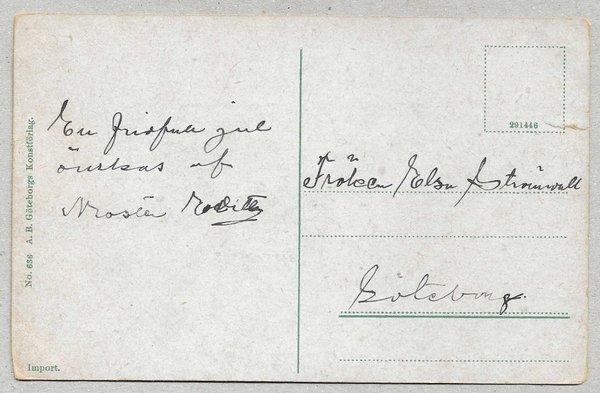 En fridfull jul
önskas af
Moster
Fröken Elsa Strömvall
Göteborg.
291446
No. 636 A. B. Göteborgs Konstförlag.
Import.